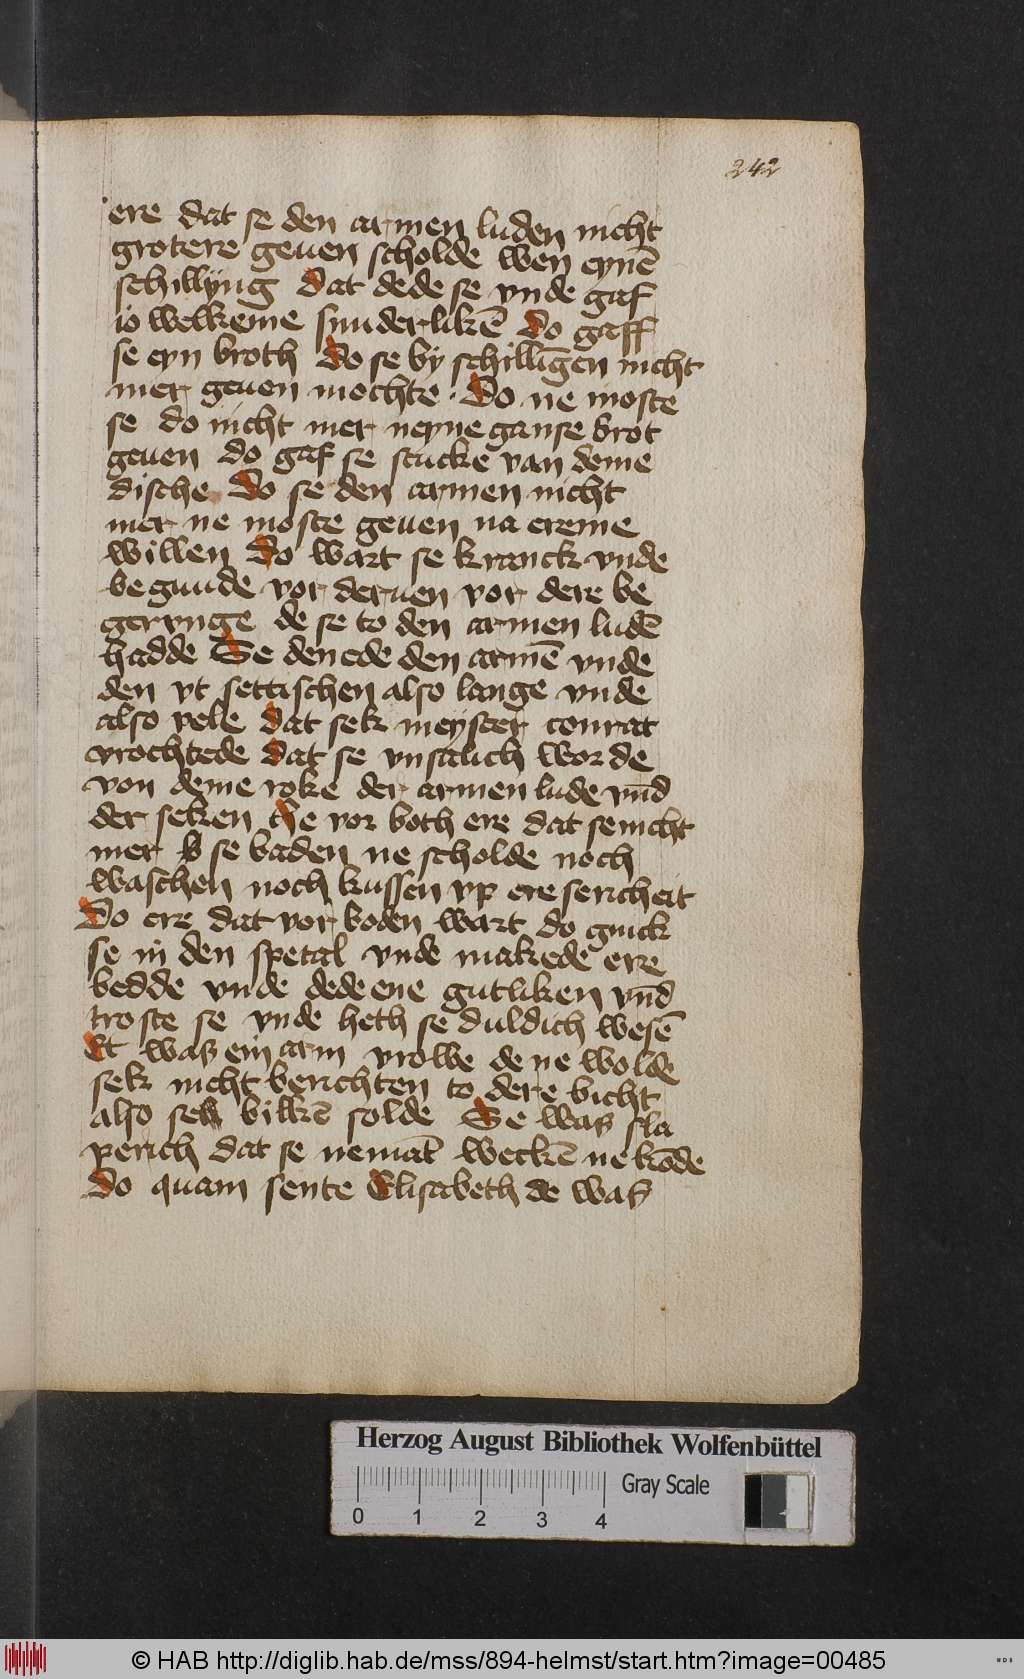 242
ere dat se den armen luden nicht
grotere geuen scholde wen eynē
schillyng dat dede se vnde gaf
io welkeme sunderlikē do gaff
se eyn broth do se by schillīgen nicht
mer geuen mochte . Do ne moste
se do nicht mer neyne ganse brot
geuen do gaf se stucke van deme
dische Do se den armen nicht
mer ne moste geuen na ereme
willen do wart se kranck vnde
be gunde vor deruen vor dere be
gerynge de se to den armen ludē
hadde Se denede den armē vnde
den vt settischen also lange vnde
also vele dat sek meyster conrat
vrochtede dat se vnsalich worde
von deme roke der armen lude vn̄d
der seken he vor both ere dat se nicht
mer se baden ne scholde noch
waschen noch kussen vp ere sericheit
Do ere dat vor boden wart do gnick
se in den spetal vnde makede ere
bedde vnde dede ene gutliken vn̄d
troste se vnde heth se duldich wesē
Et waß ein arm vrowe de ne wolde
sek nicht berichten to dere bicht
also se billkē solde Se waß sla
perich dat se nemāt weckē ne kōde
Do quam sente Elisabeth de waß
Herzog August Bibliothek Wolfenbüttel
Gray Scale
0 1 2 3 4
© HAB http://diglib.hab.de/mss/894-helmst/start.htm?image=00485